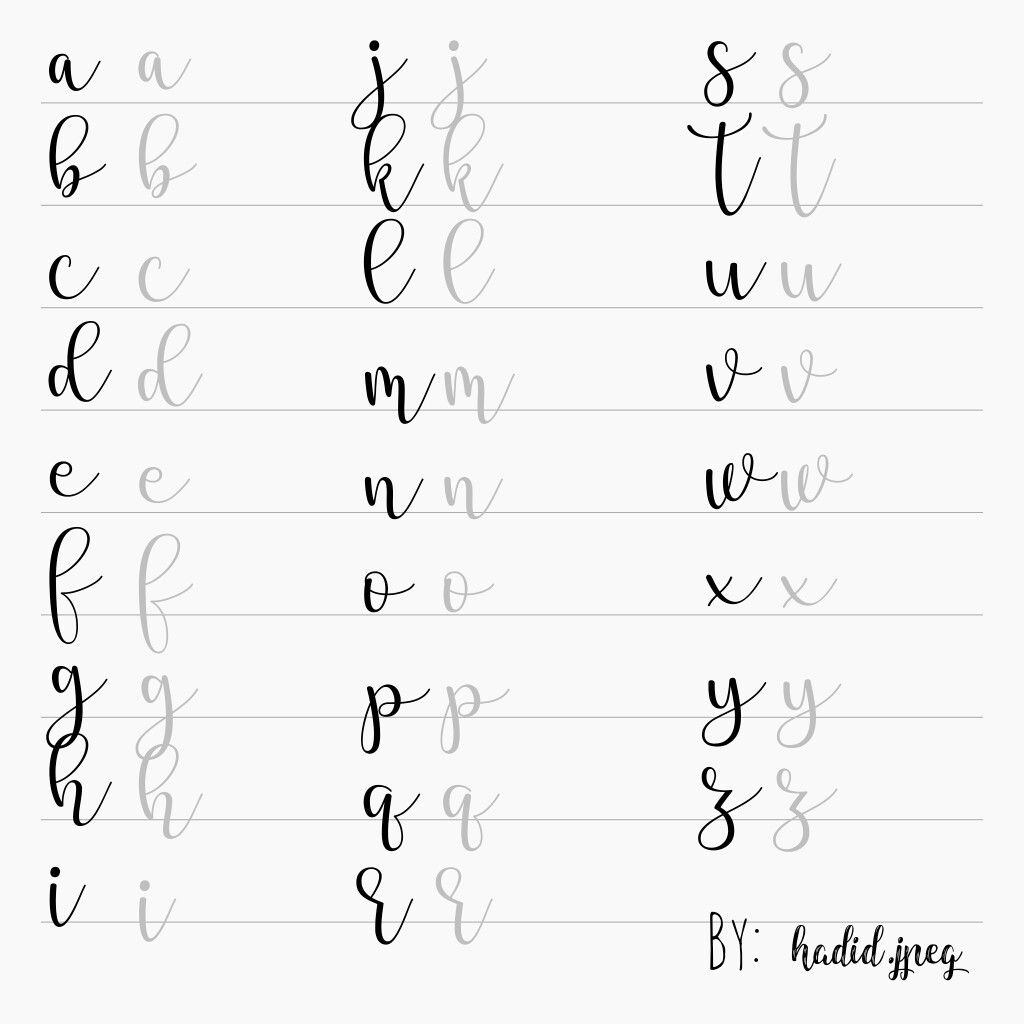 a a j j s s
b b k k t t
c c l l u u
d d m m v v
e e n n w w
f f o o x x
g g p p y y
h h q q z z
i i r r
BY: hadid.jpeg